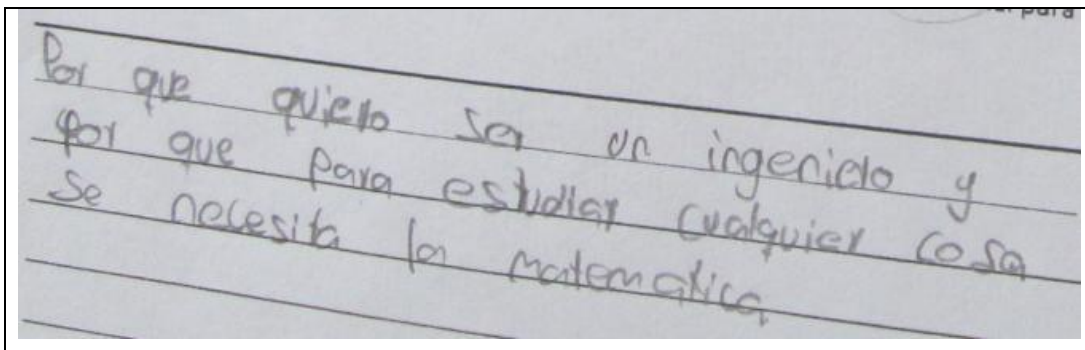 para
Por que quiero ser un ingeniero y
por que para estudiar cualquier cosa
se necesita la matematica